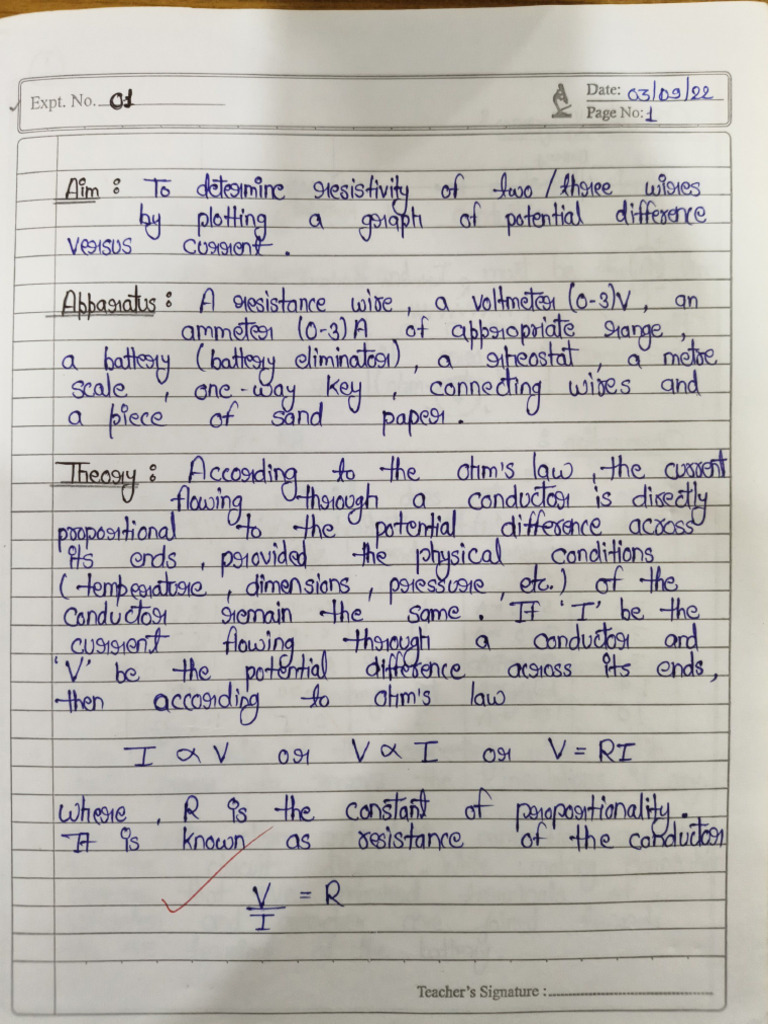 Expt. No. 01
Date: 03/09/22
Page No: 1
Aim : To determine resistivity of two / three wires
by plotting a graph of potential difference
versus current .
Apparatus : A resistance wire , a voltmeter (0-3)V , an
ammeter (0-3) A of appropriate range ,
a battery (battery eliminator) , a rheostat , a metre
scale , one-way key , connecting wires and
a piece of sand paper .
Theory : According to the ohm's law , the current
flowing through a conductor is directly
proportional to the potential difference across
its ends , provided the physical conditions
( temperature , dimensions , pressure , etc. ) of the
conductor remain the same . If 'I' be the
current flowing through a conductor and
'V' be the potential difference across its ends ,
then according to ohm's law
I ∝ V or V ∝ I or V = RI
Where , R is the constant of proportionality .
It is known as resistance of the conductor
V/I = R
Teacher's Signature :